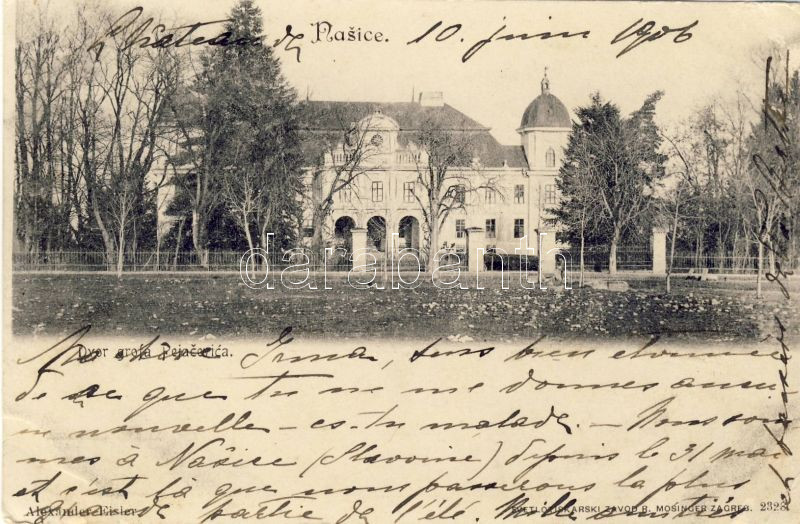 Château de Našice. 10 juin 1906
darabanth
Dvor grofa Pejačevića.
Ma Irma, suis bien étonnée
de ce que tu ne me donnes aucu
ne nouvelle - es-tu malade. - Nous som
mes à Našice (Slavonie) depuis le 31 mai
et c'est là que nous passerons la plus
grande partie de l'été. Mille
Alexander Eisler
SVJETLOTISKARSKI ZAVOD R. MOSINGER ZAGREB. 2328